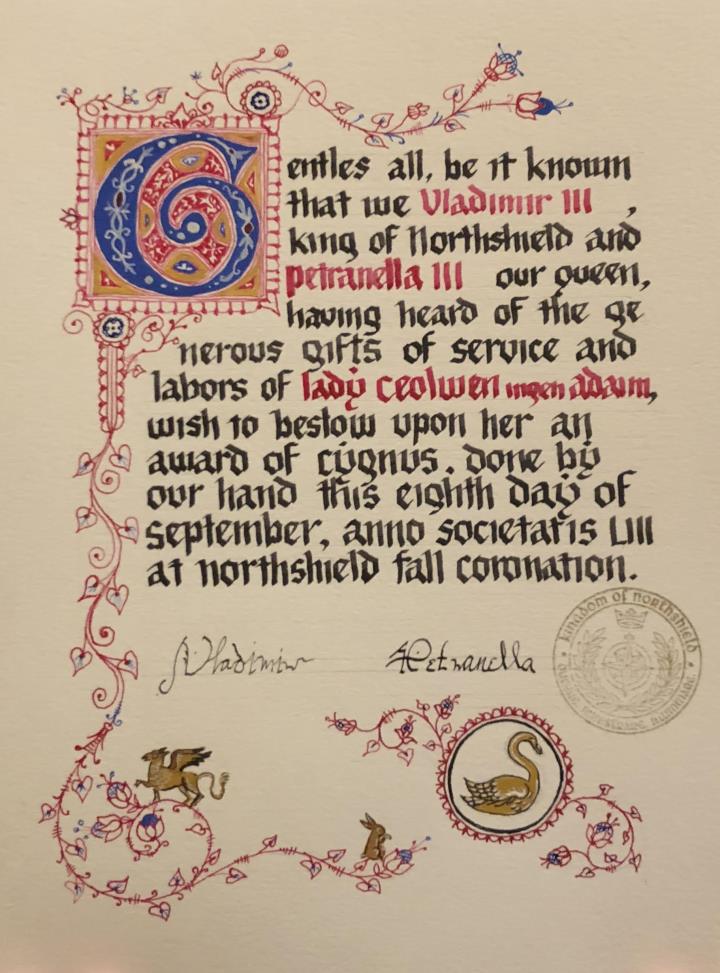 Gentles all, be it known
that we Vladimir III ,
king of Northshield and
petranella III our queen,
having heard of the ge
nerous gifts of service and
labors of lady ceolwen ingen adaim,
wish to bestow upon her an
award of cygnus. done by
our hand this eighth day of
september, anno societatis LIII
at northshield fall coronation.
Vladimir Petranella
kingdom of northshield